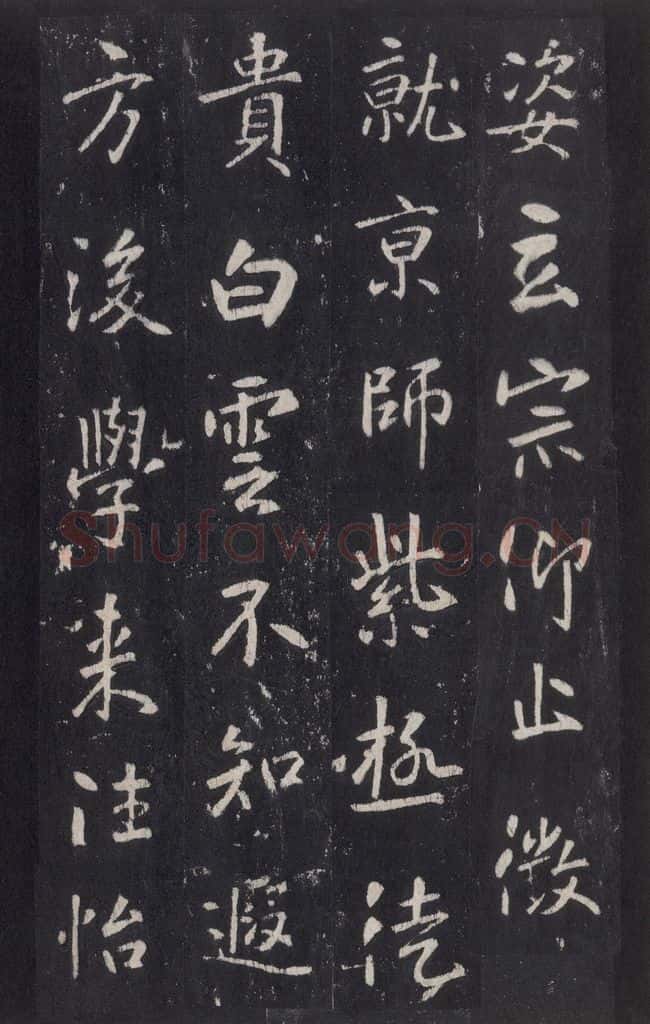 姿玄宗仰止徵
就京師紫極徒
貴白雲不知遐
方後學来往怡
Shufawang.CN